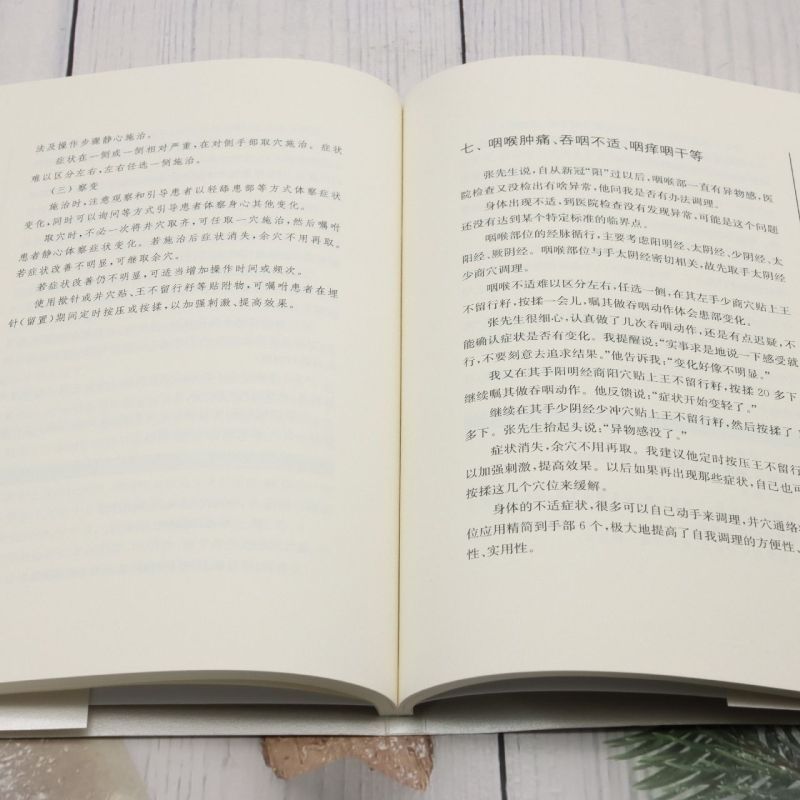 法及操作步骤静心施治。
症状在一侧或一侧相对严重，在对侧手部取穴施治。症状
难以区分左右，左右任选一侧施治。
（三）察变
施治时，注意观察和引导患者以轻舔患部等方式体察症状
变化，同时可以询问等方式引导患者体察身心其他变化。
取穴时，不必一次将井穴取齐，可任取一穴施治，然后嘱咐
患者静心体察症状变化。若施治后症状消失，余穴不用再取。
若症状改善不明显，可继取余穴。
若症状改善仍不明显，可适当增加操作时间或频次。
使用揿针或井穴贴、王不留行籽等贴附物，可嘱咐患者在埋
针（留置）期间定时按压或按揉，以加强刺激、提高效果。
七、咽喉肿痛、吞咽不适、咽痒咽干等
张先生说，自从新冠“阳”过以后，咽喉部一直有异物感，医
院检查又没检出有啥异常，他问我是否有办法调理。
身体出现不适，到医院检查没有发现异常，可能是这个问题
还没有达到某个特定标准的临界点。
咽喉部位的经脉循行，主要考虑阳明经、太阴经、少阴经、太
阳经、厥阴经。咽喉部位与手太阴经密切相关，故先取手太阴经
少商穴调理。
咽喉不适难以区分左右，任选一侧，在其左手少商穴贴上王
不留行籽，按揉一会儿，嘱其做吞咽动作体会患部变化。
张先生很细心，认真做了几次吞咽动作，还是有点迟疑，不
能确认症状是否有变化。我提醒说：“实事求是地说一下感受就
行，不要刻意去追求结果。”他告诉我：“变化好像不明显。”
我又在其手阳明经商阳穴贴上王不留行籽，按揉 20 多下
继续嘱其做吞咽动作。他反馈说：“症状开始变轻了。”
继续在其手少阴经少冲穴贴上王不留行籽，然后按揉了
多下。张先生抬起头说：“异物感没了。”
症状消失，余穴不用再取。我建议他定时按压王不留行
以加强刺激，提高效果。以后如果再出现那些症状，自己也可
按揉这几个穴位来缓解。
身体的不适症状，很多可以自己动手来调理，井穴通络
位应用精简到手部 6 个，极大地提高了自我调理的方便性、
性、实用性。